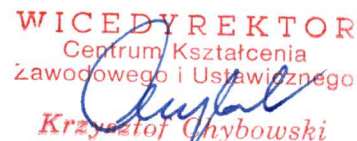 WICEDYREKTOR
Centrum Kształcenia
Zawodowego i Ustawicznego
Krzysztof Chybowski